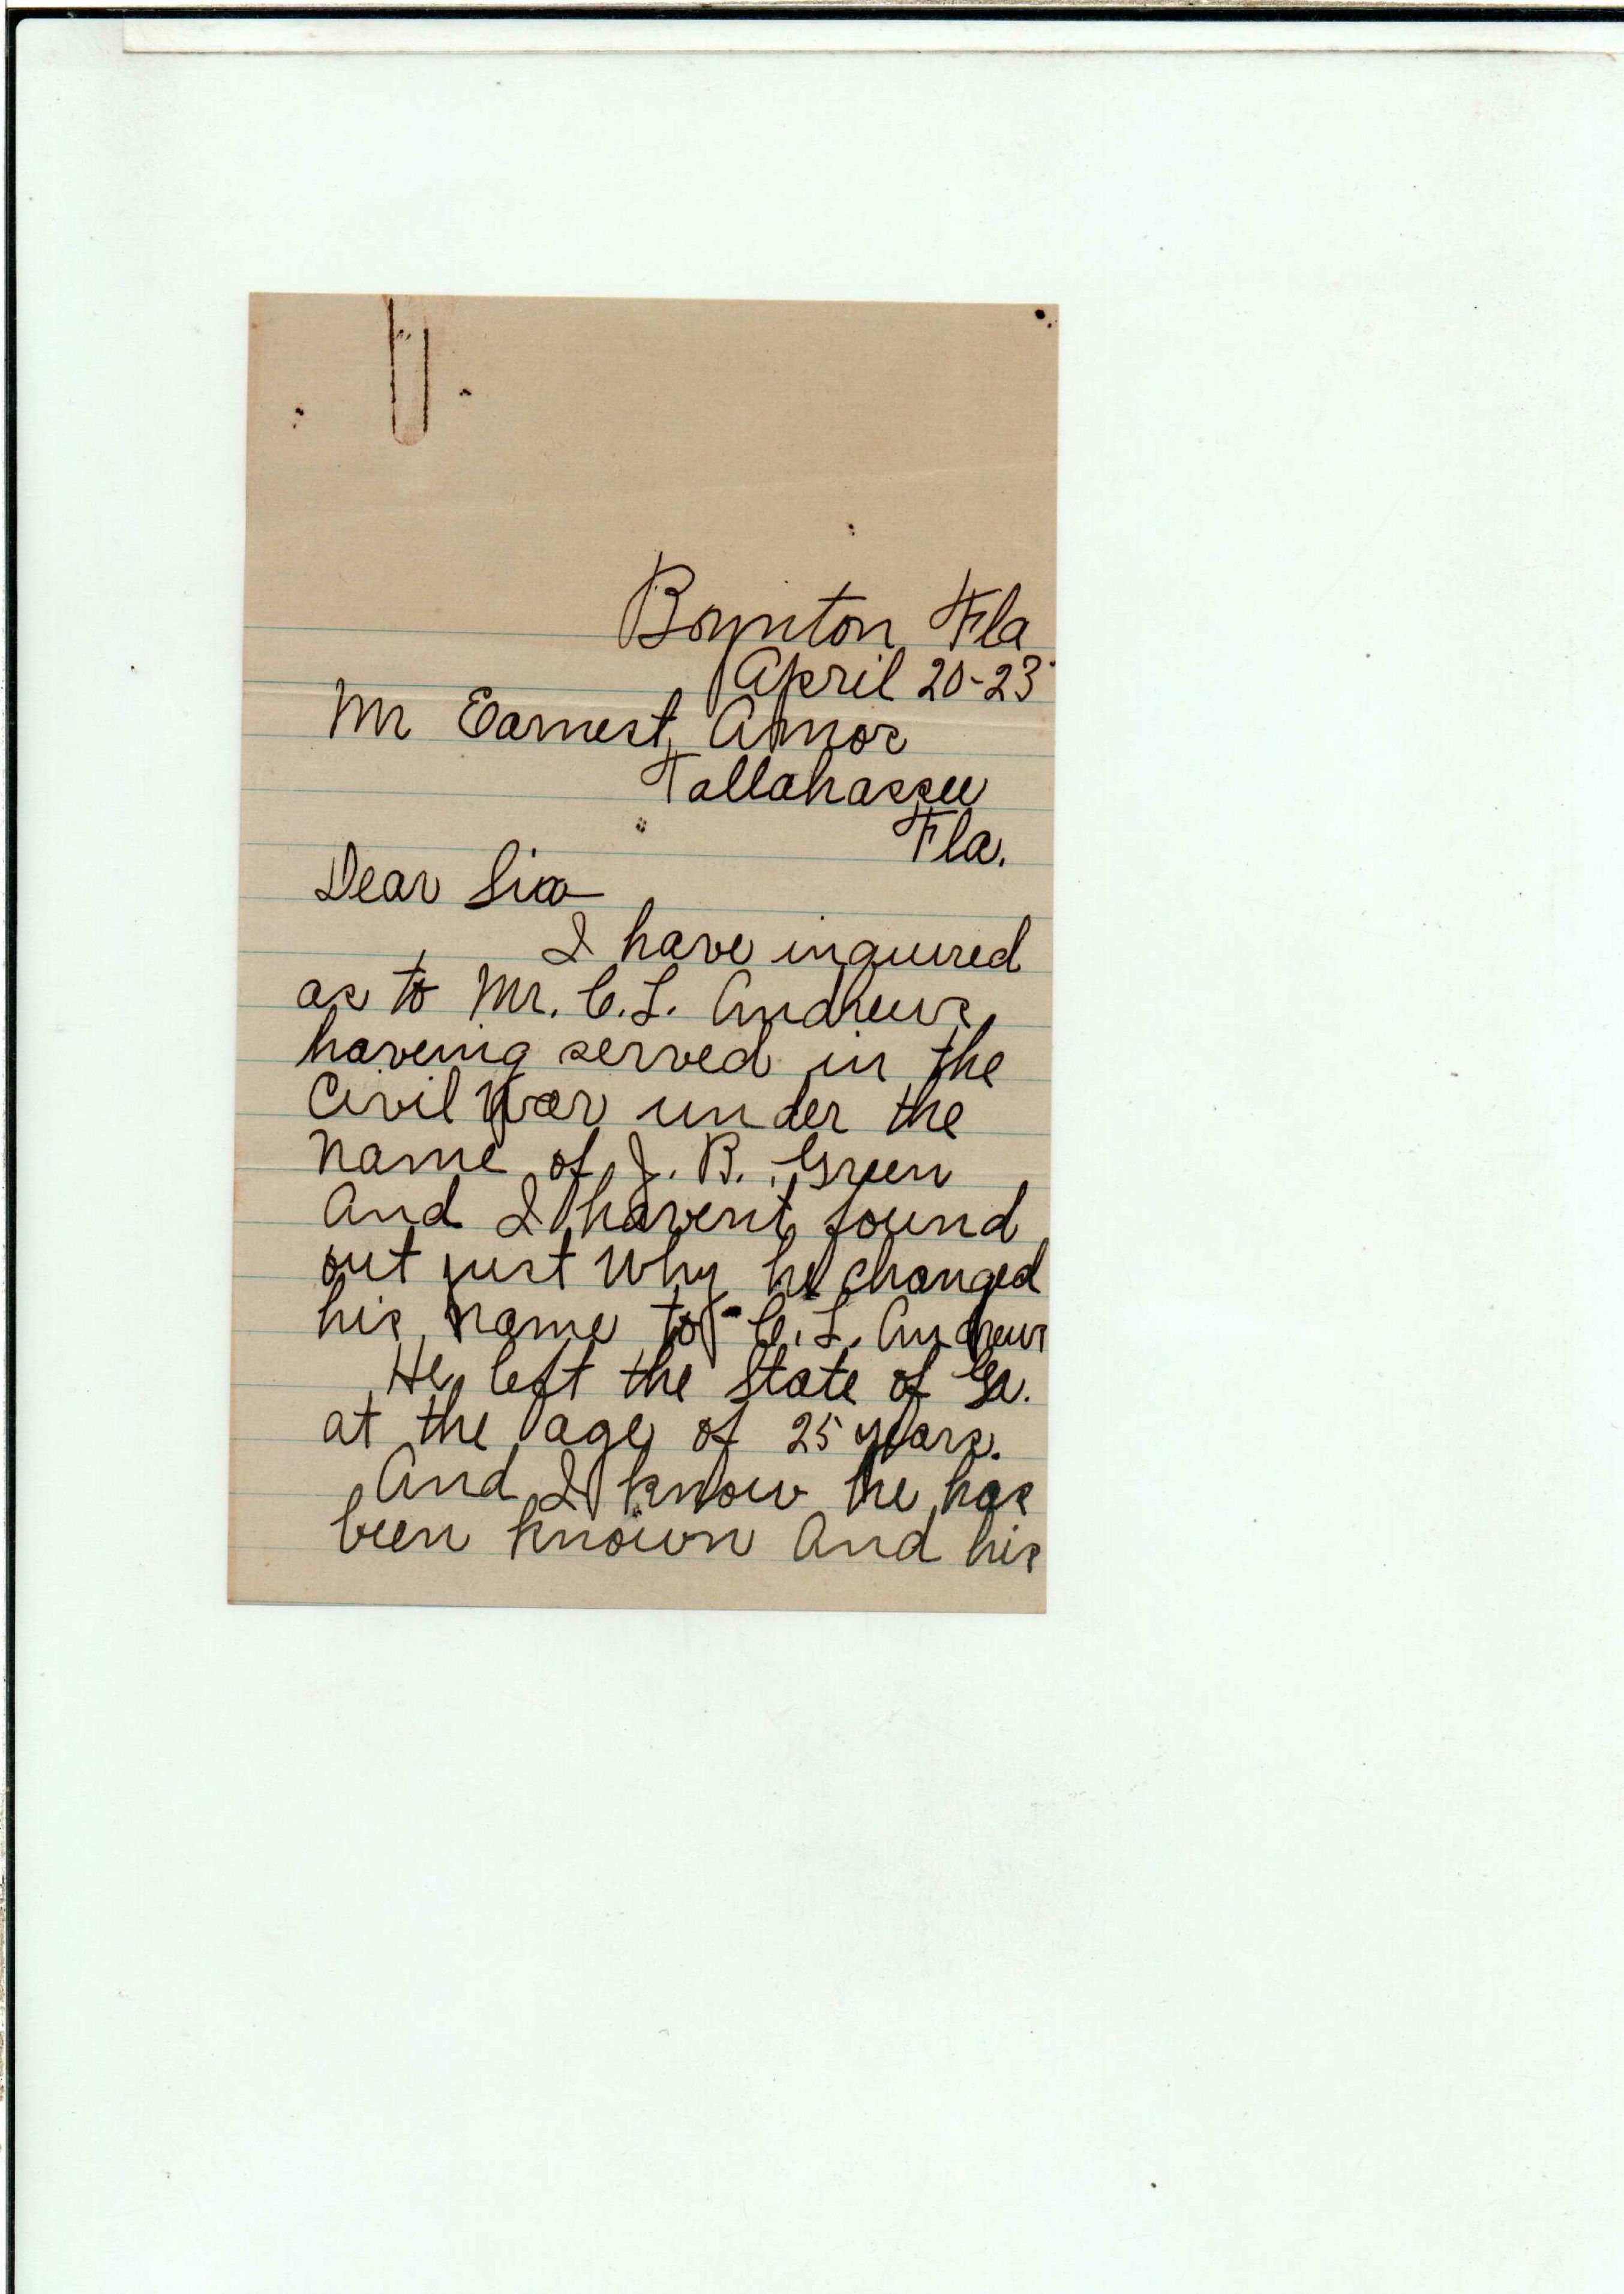 Boynton Fla
April 20-23
Mr Earnest Amos
Tallahassee
Fla.
Dear Sir
I have inquired
as to Mr. C.L. Andrews
haveing served in the
Civil War under the
name of J. B. Green
And I havent found
out just why he changed
his name to C.L. Andrews
He left the State of Ga.
at the age of 25 years.
And I know he has
been known And his